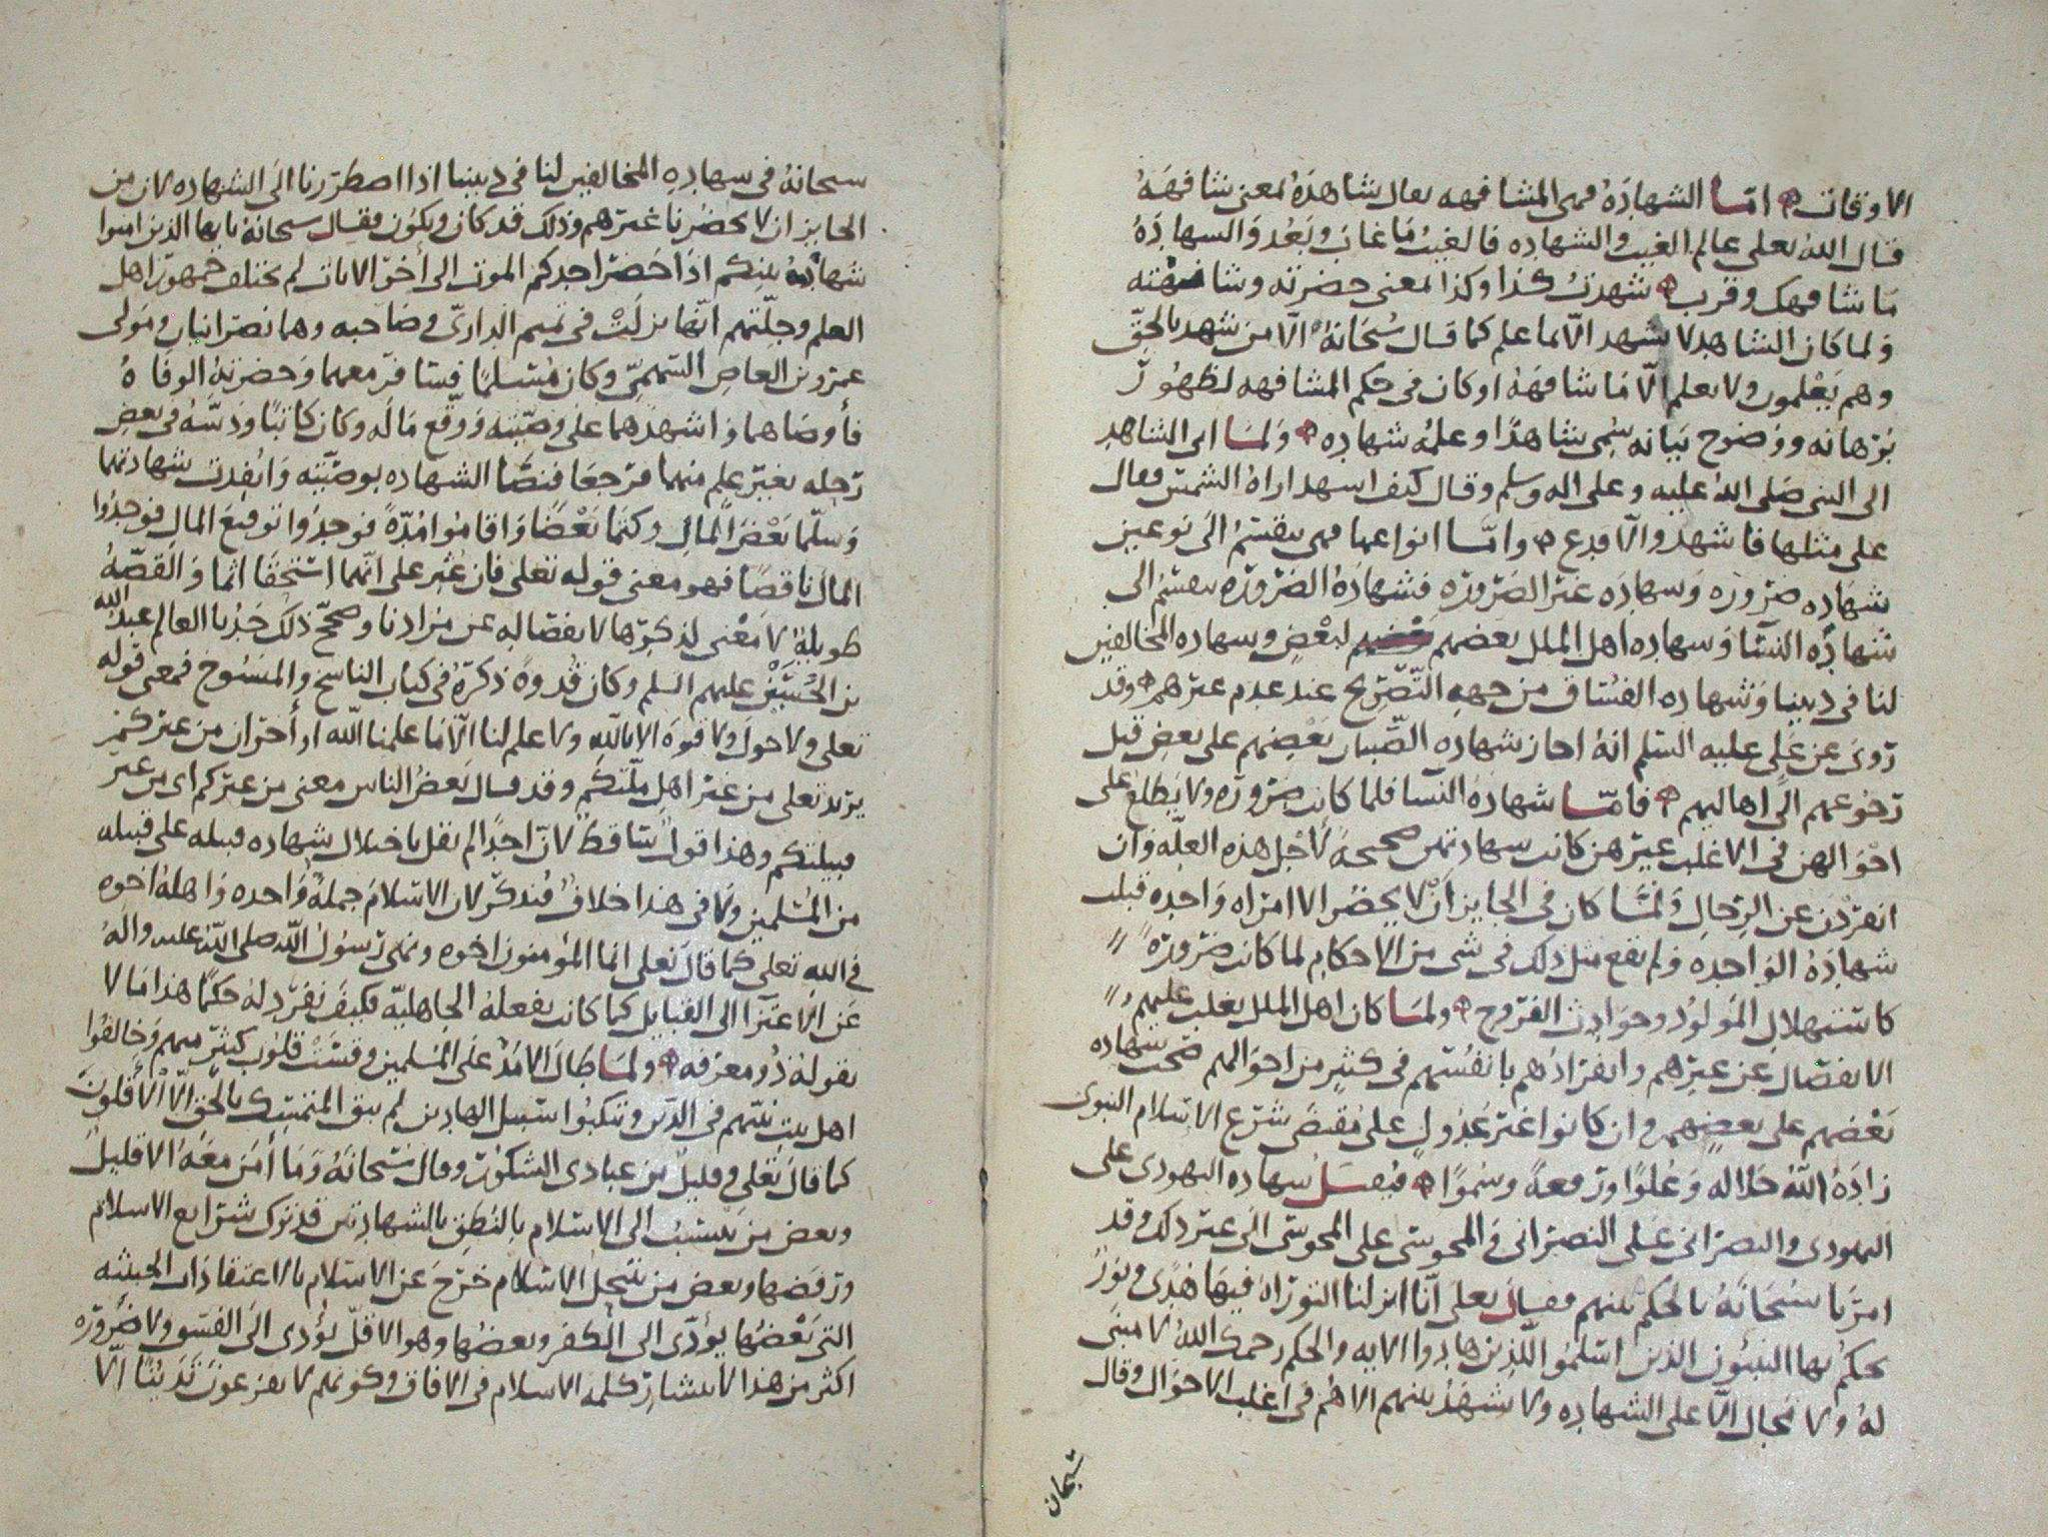 الاوقات امّا الشهادَهُ فهى المشافهه يقال شاهدَهُ بمعنى شافهَهُ
قال اللهُ تعلى عالم الغيب والشهاده فالغيبُ مَا غابَ وبَعُد وَالشهادَهُ
مَا شافهك وقرب شهدتُ كذا وكذا بمعنى حضرته وشافهته
وَلما كان الشاهد لا يشهد الّا بما علم كما قال سُبحَانهُ الّا من شهد بالحقّ
وهم يَعْلمون ولا يعلم الّا مَا شافههُ او كان فى حكم المشافهه لظهُورِ
بُرْهانه ووضوح بَيَانه سُمى شاهدًا وعلمُهُ شهاده وَلمَا اتى الشاهد
الى النبى صَلى اللهُ عليه وعلى اله وسلم وقال كيف اشهد اراهُ الشمس فقال
على مثلها فاشهد والّا فدع وامّا انواعها فهى ينقسمُ الىَ نوعين
شهَاده ضرُورَه وَشهادَه غير الضَرُورَه فشهادَهُ الضَرُورَه ينقسمُ الى
شهادَه النسَآ وَشهاده اهل الملل بعضهم لبعْضٍ وشهاده المخالفين
لنا فى ديننا وَشهاده الفسَّاق من جهه التّصْريح عند عدم غيرهم وقد
رُوىَ عن عَلى عليه السَلم انهُ اجاز شهاده الصّبيان بَعْضِهم على بعض قبل
رُجُوعهم الىَ اهاليهم فامّا شهادَهُ النّسَا فلما كانت ضرُورَه ولا يَطلِعُ على
احوَالهن فى الاغلب غيرهن كانت شهادتهن صحيحهً لاجل هذه العلّه وَان
انفرَدْنَ عن الرّجالِ وَلمَّا كان فى الجايز انْ لا يحضُرَ الا امرَاه وَاحده قبلت
شهادَهُ الوَاحده وَلم يقع مثل ذلك فى شى من الاحكامِ لما كانت ضرُورَهً
كاستهلالِ المَولُود وحوَادث الفرُوج ولمَا كان اهل الملل يغلب عليهم
الانفصَال عن غيرهم وانفرَادُهم بانفُسهم فى كثيرٍ من احوَالهم صَحّت شهاده
بَعْضهم على بعضهم وان كانوا غيْر عُدُولٍ على مُقتضَى شرْع الاسلام النبوى
زادَهُ اللهُ جَلاله وَعُلوًا ورفعهً وسُموًا فنقبَل شهاده اليهودى على
اليهودى والنصرَانى عَلى النصرَانى وَالمجوسى على المجوسى الىَ غير ذلك وقد
امرَنا سُبحَانَهُ بالحكم بينهم فقال تعلى انّا انزلنا التورَاه فيهَا هُدًى ونورٌ
يحكمُ بها النبيّون الذين اسْلمُوا للّذين هادُوا الايه والحكم رحمك اللهُ لا مبنى
لهُ ولا مجال الّا على الشهاده ولا يشهَدُ بينهم الا هُم فى اغلب الاحوَال وقال
سُبحان
سبحانهُ فى شهادهِ المخالفين لنا فى ديننا اذا اضطررنا الىَ الشهاده لان من
الجايز ان لا يحضُرنا غيرهم وذلك قد كان ويكوُن فقال سبحانهُ يايها الذين امنوا
شهادَهُ بينكم اذَا حَضر احدكم الموت الى أخرِ الايات لم يختلف جمهُورُ اهل
العلم وجلّتهم انّها نزلتْ فى تميم الدارىّ وصَاحبه وهما نصرَانيان ومَولى
عمرو بن العاص السّهمىّ وكان مُسلمًا فسافرَ معهما وَحضرتهُ الوفاهُ
فأوصَاهما وَاشهدَهما على وَصيّته وَوقّع مَا لَه وكان كاتبًا ودَسّهُ فى بعضِ
رَحله بغير علمٍ منهما فرَجعَا فنصَّا الشهاده بوصيّته وَانفدت شهادتهما
وَسلّما بَعْضَ المالِ وكتمَا بَعْضًا وَاقامُوا مُدّهً فوَجدُوا توقيعَ المالِ فوَجدُوا
المالَ ناقصًا فهو معنى قوله تعلى فان عُثِر على انّهما استحَقّا اثما وَالقصّهُ
طويلهٌ لا معْنى لذكرها لانفصَاله عن مرَادنا وصحّح ذلك جَدُّنا العالم عبدُ الله
بن الحُسَيْن عليهم السلم وكان قدوهً ذكرَهُ فى كتاب الناسخ والمنسُوخ فمعنى قوله
تعلى ولا حولَ ولا قوهَ الا باللهِ ولا علم لنا الّا مَا علمنا اللّه او أخرَان من غيركم
يريد تعلى من غير اهل ملّتكم وقد قال بَعضُ الناس معنى من غيركم اى من غير
قبيلتكم وهذا قولٌ ساقط لانّ احدًا لم يقل باختلال شهاده قبيله على قبيله
من المُسْلمين ولا فى هذا خلافٌ فنذكرَ لان الاسلامَ جملهٌ وَاحده وَاهلهُ اخوه
فى الله تعلى كما قالَ تعلى انما المؤمنون اخوه ونهى رسُولُ اللّه صلى اللّه عليه والهُ
عَن الاعتزا الى القبايل كما كانت يفعلهُ الجاهليّه فكيفَ نفرد لهُ حكمًا هذا مَا لا
يقولهُ ذُو معرَفه ولمَا طالَ الامَدُ علَى المُسلمين وقسَتْ قلوُب كثيرٍ منهم وَخالفُوا
اهل بيت نبيّهم فى الدّين وتنكبُوا سَبيل الهادين لم يبق المتمَسّك بالحَق الّا الأقلونَ
كما قالَ تعلى وقليلٌ من عبادى الشكوُر وقال سبحانَهُ وَمَا أمَنَ معَهُ الا قليلٌ
وبعض من يَنتسبُ الى الاسْلام بالنُطق بالشهادتين قد ترَك شرَايع الاسلام
ورَفضهَا وبعض من ينتحل الاسْلام خرَجَ عن الاسْلام بالاعتقادَات الخبيثه
التى بَعْضُها يؤدّى الى الكفر وبعضُها وهو الاقلّ يُؤدى الىَ الفسق ولا ضرُورَه
اكثر من هذا لانتشارِ كلمه الاسلام فى الافاق وكونهم لا يفزعون تَدَيّنًا الّا